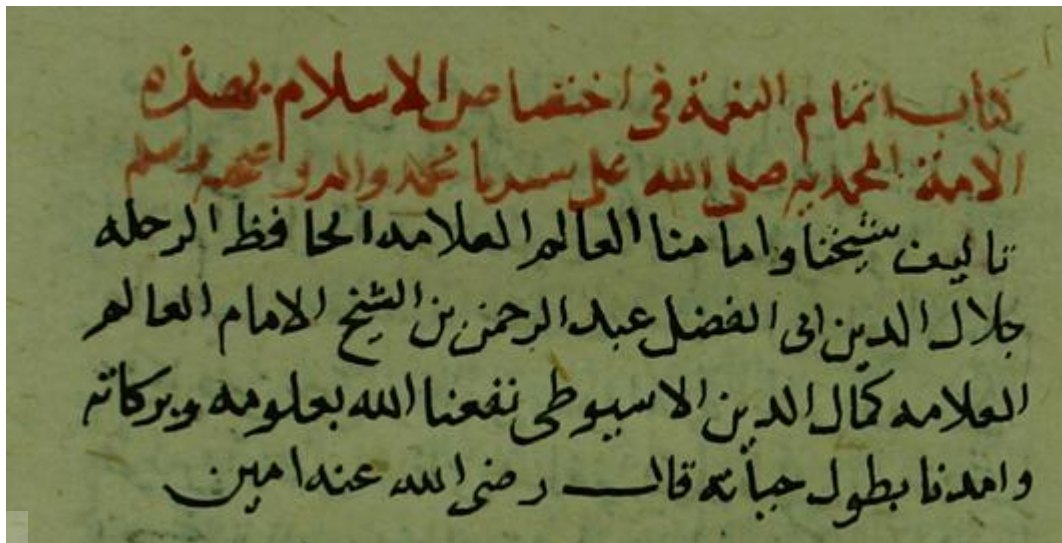 كتاب اتمام النعمة في اختصاص الاسلام بهذه
الامة المحمديه صلى الله على سيدنا محمد واله وصحبه وسلم
تاليف شيخنا وامامنا العالم العلامه الحافظ الرحله
جلال الدين ابي الفضل عبد الرحمن بن الشيخ الامام العالم
العلامه كمال الدين الاسيوطي نفعنا الله بعلومه وبركاته
وامدنا بطول حياته قال رضي الله عنه امين